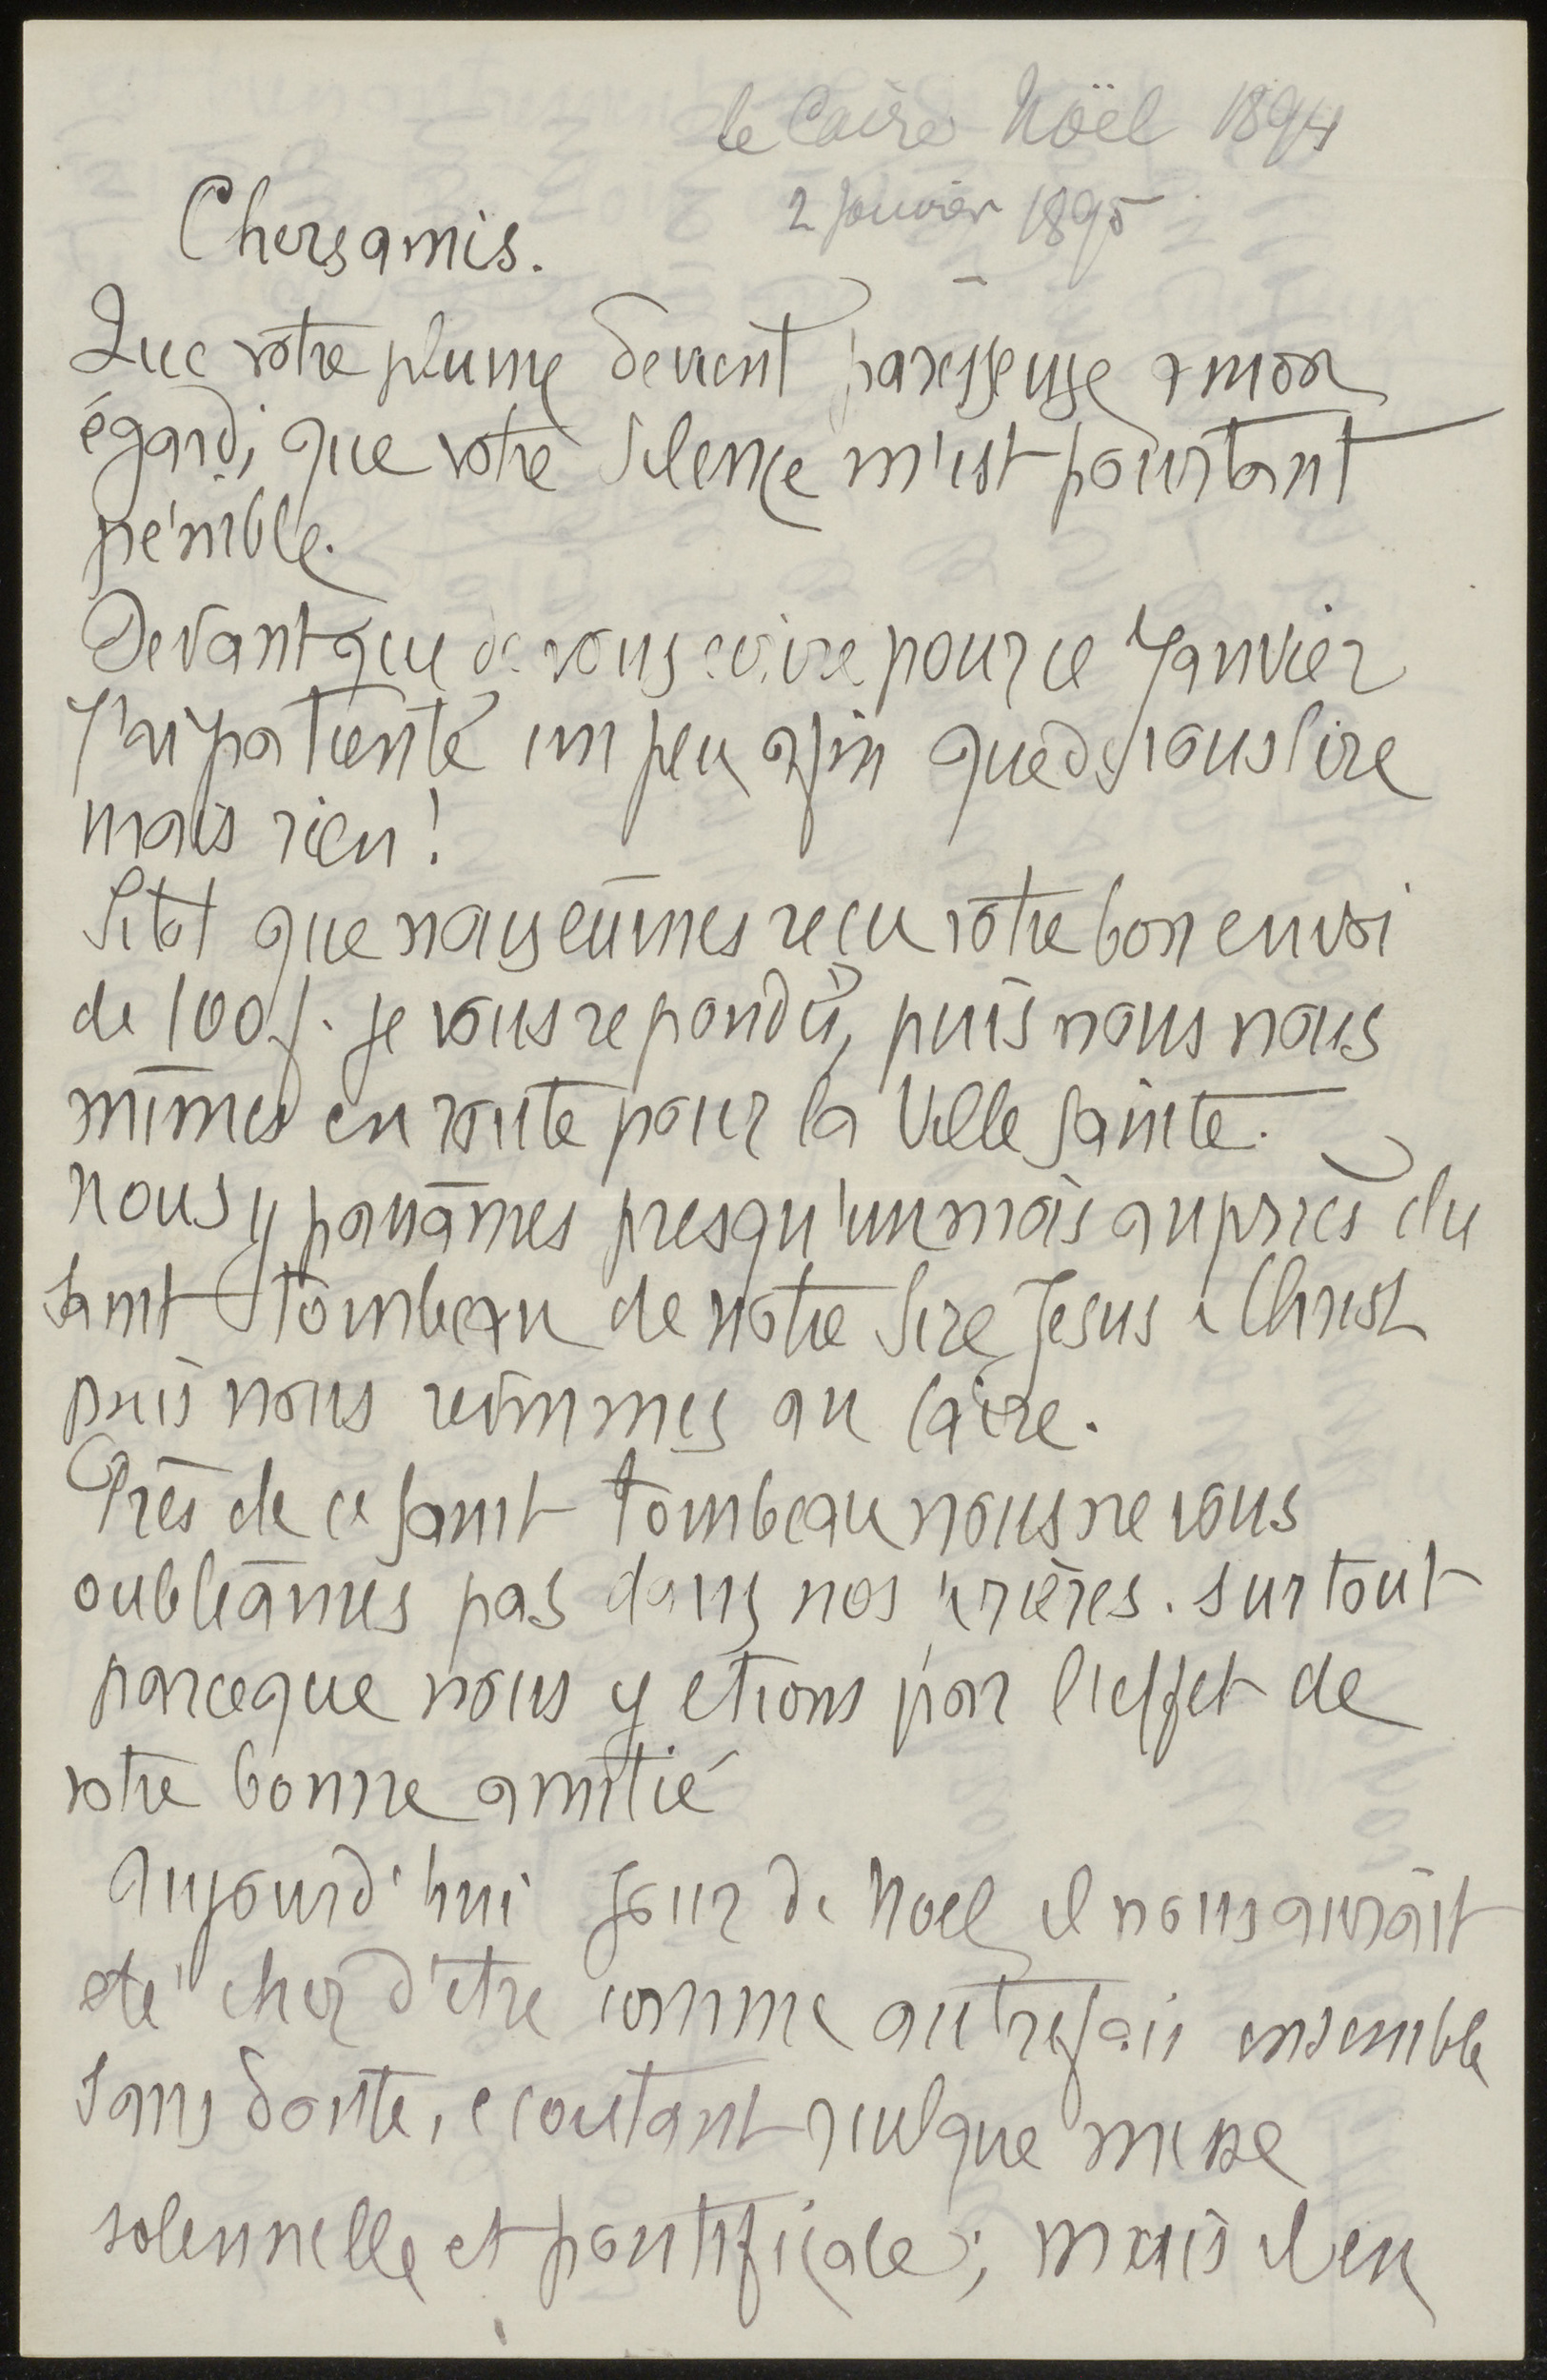 le Caire Noël 1894
2 janvier 1895
Chers amis.
Que votre plume devient paresseuse a mon
égard, que votre silence m'est pourtant
pénible.
Devant que de vous ecrire pour ce Janvier
J'ai patienté un peu afin que de vous lire
mais rien !
Sitot que nous eûmes reçu votre bon envoi
de 100 f. je vous repondis, puis nous nous
mîmes en route pour la Ville Sainte.
Nous y passâmes presqu'un mois auprès du
Saint Tombeau de notre Sire Jesus Christ
puis nous revinmmes au Caire.
Près de ce Saint Tombeau nous ne vous
oubliâmes pas dans nos prières. surtout
parceque nous y etions par l'effet de
votre bonne amitié
Aujourd'hui jour de Noel il nous aurait
eté cher d'etre comme autrefois ensemble
sans doute, ecoutant quelque messe
solennelle et pontificale ; mais il en